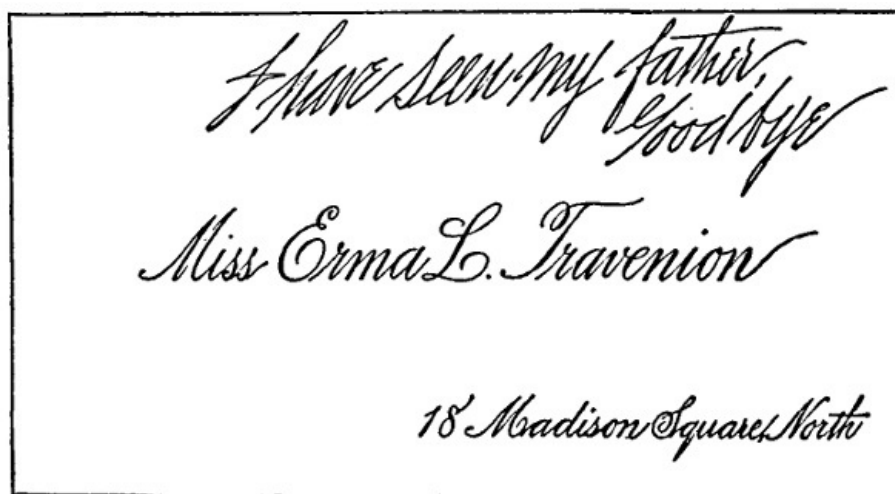 I have seen my father,
Good bye
Miss Erma L. Travenion
18 Madison Square, North